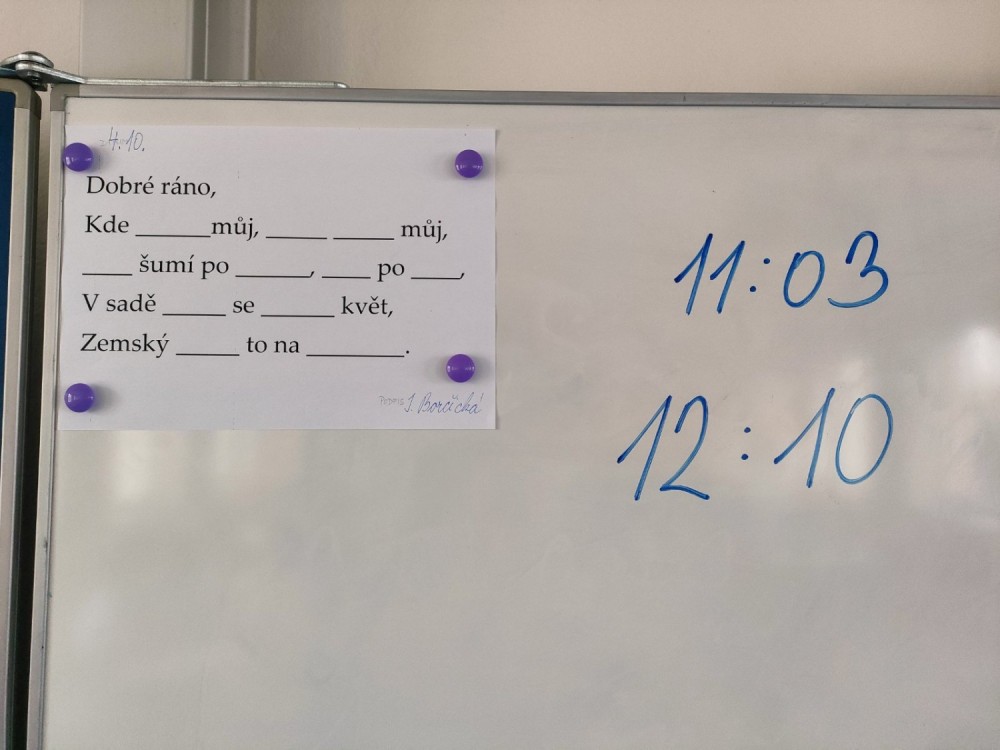 4.10.
Dobré ráno,
Kde ______můj, _____ _____ můj,
____ šumí po ______, ____ po ____,
V sadě _____ se ______ květ,
Zemský _____ to na ________.
J. Borčická
11:03
12:10